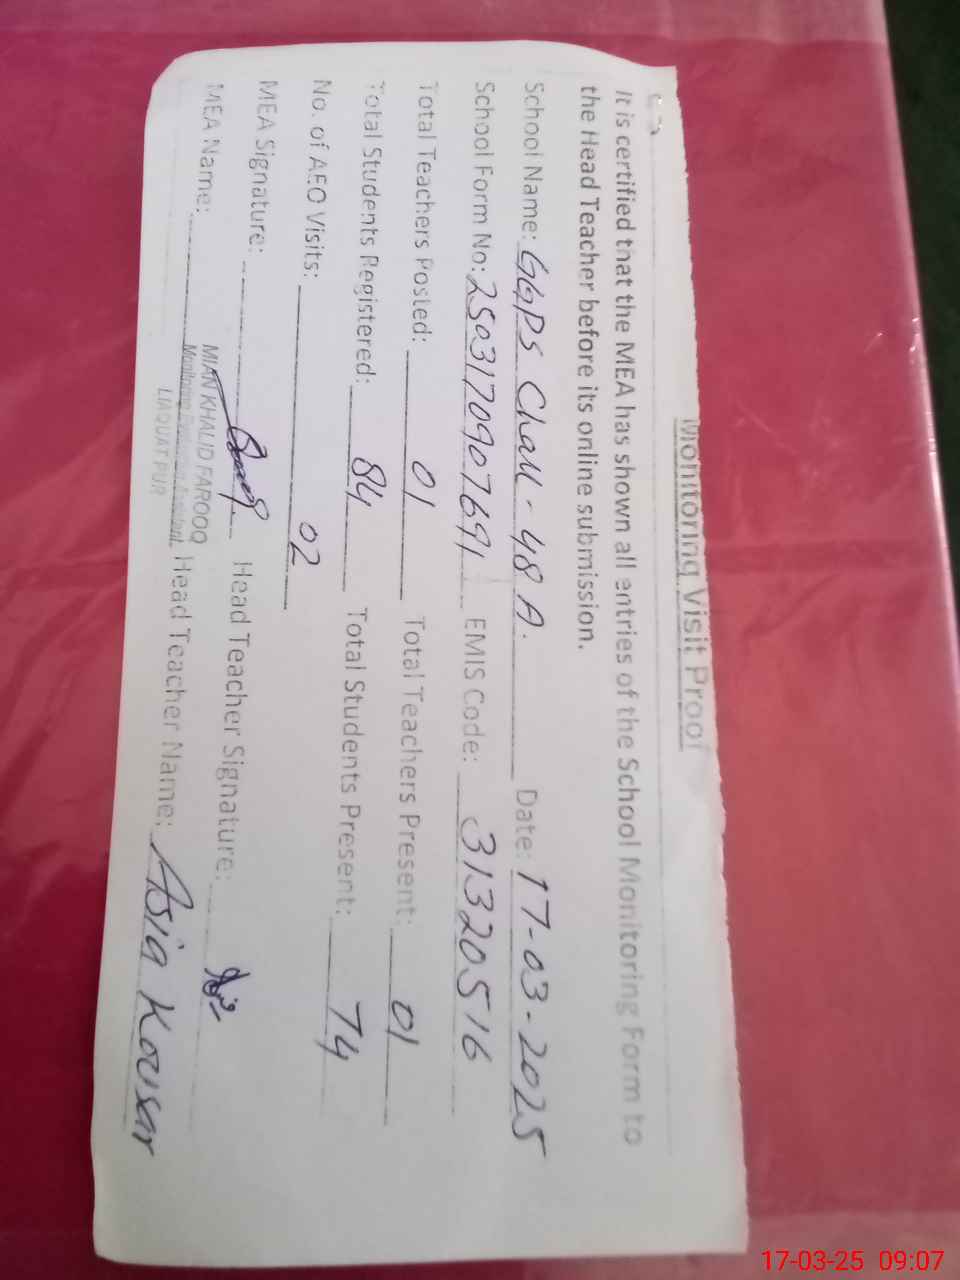 Monitoring Visit Proof
It is certified that the MEA has shown all entries of the School Monitoring Form to
the Head Teacher before its online submission.
School Name: GGPS Chak - 48 A. Date: 17-03-2025
School Form No: 2503170907691 EMIS Code: 31320516
Total Teachers Posted: 01 Total Teachers Present: 01
Total Students Registered: 84 Total Students Present: 74
No. of AEO Visits: 02
MEA Signature: Head Teacher Signature:
MEA Name: MIAN KHALID FAROOQ Head Teacher Name: Asia Kousar
LIAQUAT PUR
17-03-25 09:07